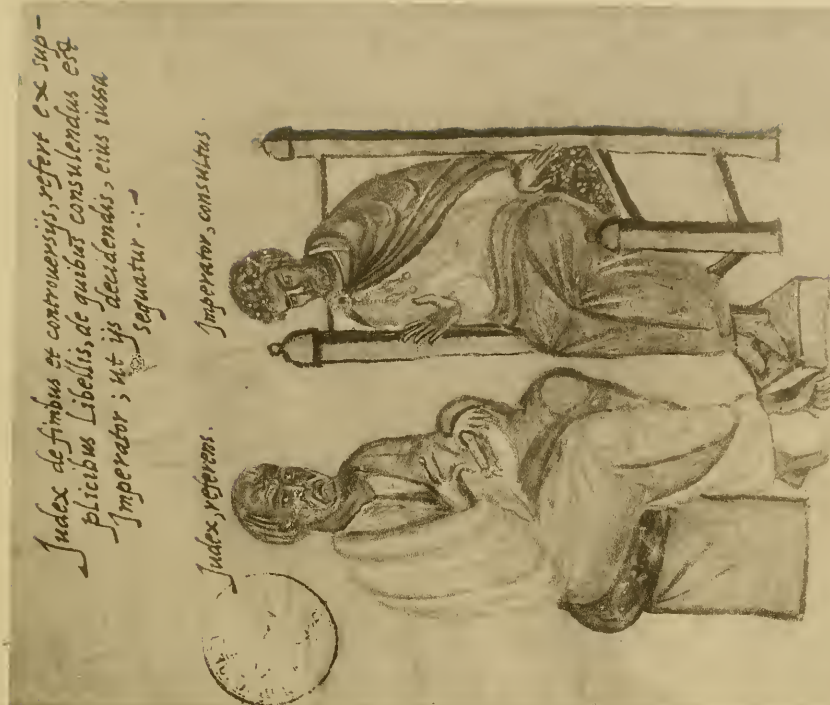 Iudex de finibus et controuersijs, refert ex sup-
plicibus Libellis, de quibus consulendus est
Imperator; ut ijs decidendis, eius iussa
sequatur.:~
Iudex, referens.
Imperator, consultus.